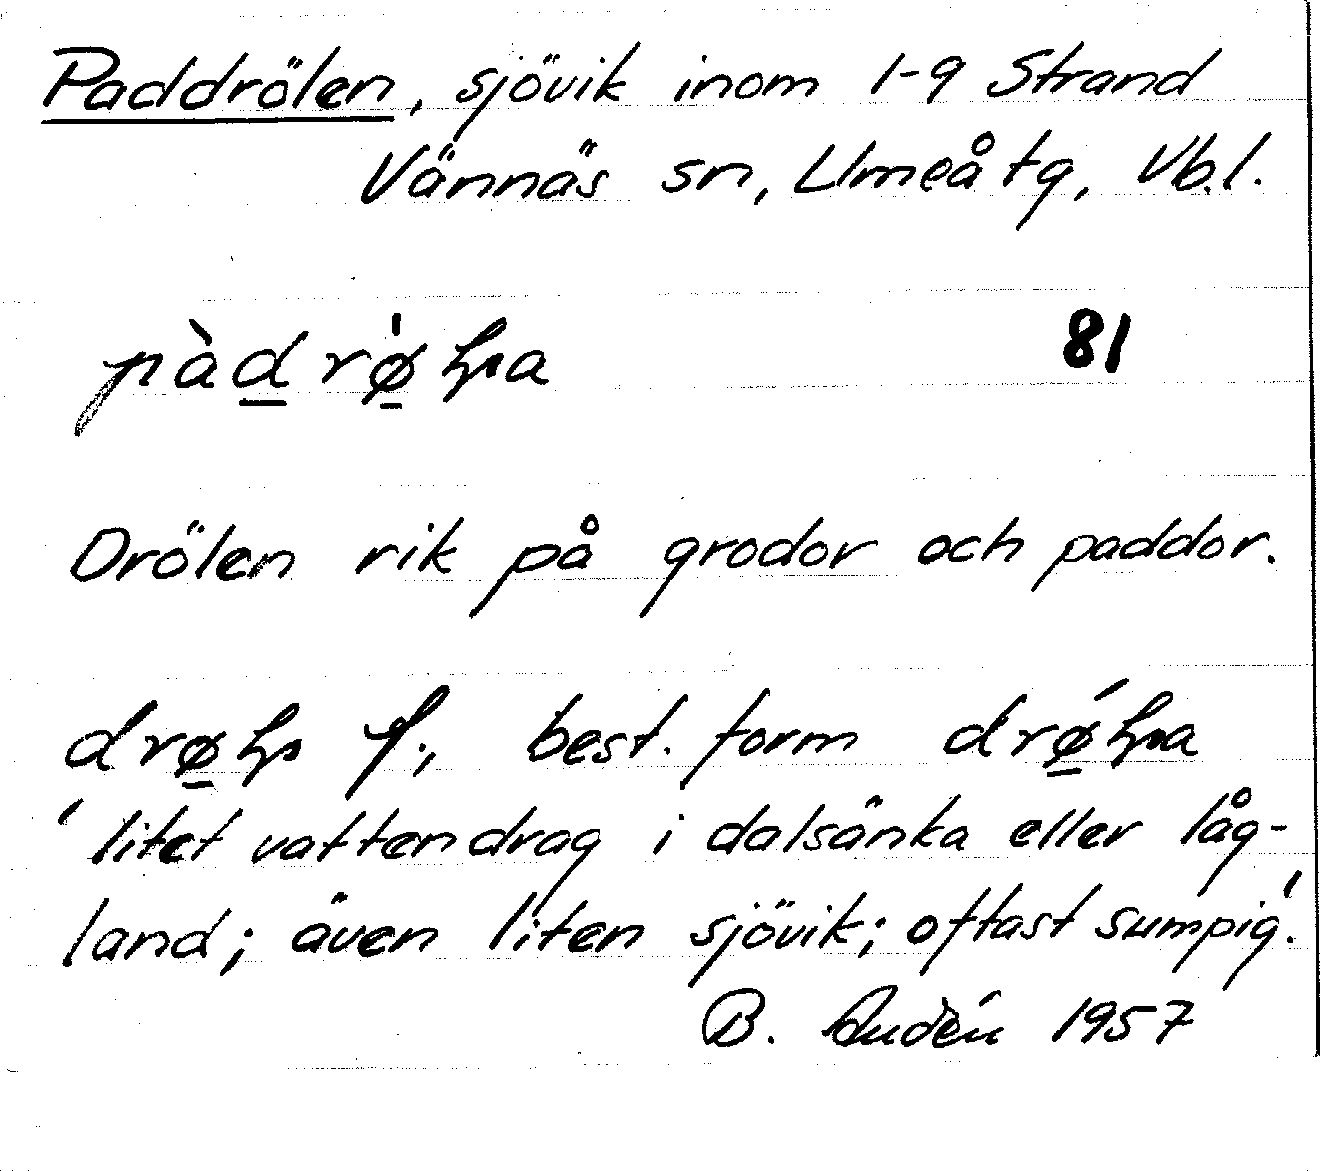 Paddrölen, sjövik inom 1-9 Strand
Vännäs sn, Umeå tg, Vb.l.
81
Drölen rik på grodor och paddor.
f., best. form
'litet vattendrag i dalsänka eller låg-
land; även liten sjövik; oftast sumpig'.
B. 1957